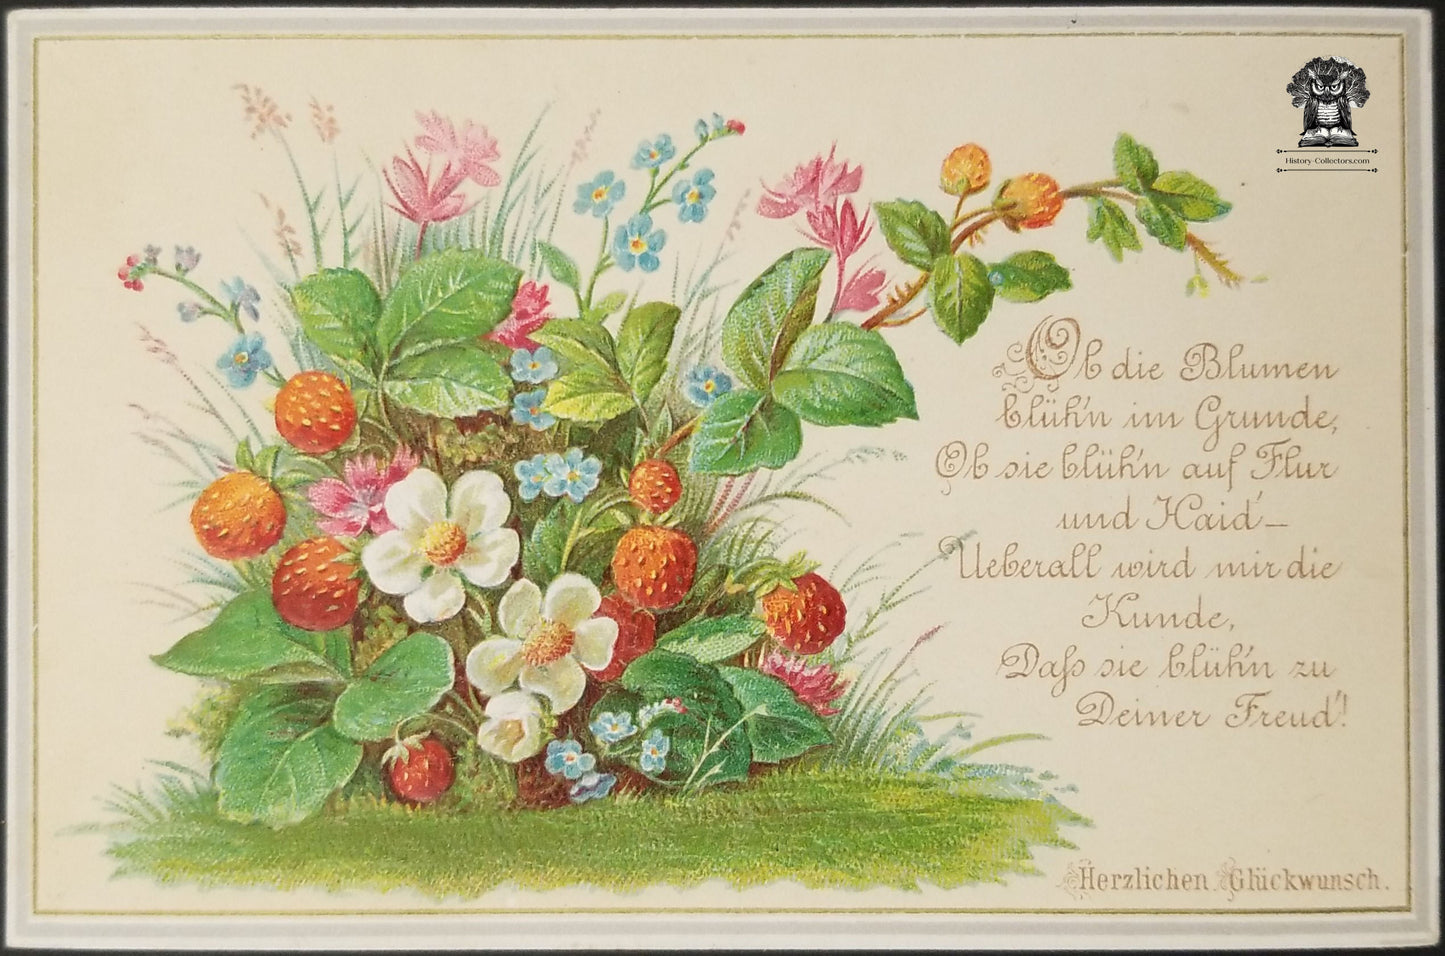 History-Collectors.com
Ob die Blumen
blüh'n im Grunde,
Ob sie blüh'n auf Flur
und Haid'—
Ueberall wird mir die
Kunde,
Daſs sie blüh'n zu
Deiner Freud'!
Herzlichen Glückwunsch.